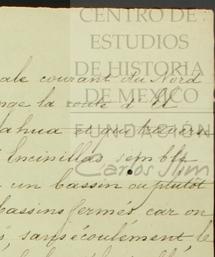 CENTRO DE
ESTUDIOS
DE HISTORIA
DE MEXICO
FUNDACIÓN
Carlos Slim
ale courant du Nord
nge la route d'El
ahua et qui
Encinillas semble
un bassin ou plutôt
bassins fermés car on
sans écoulement le